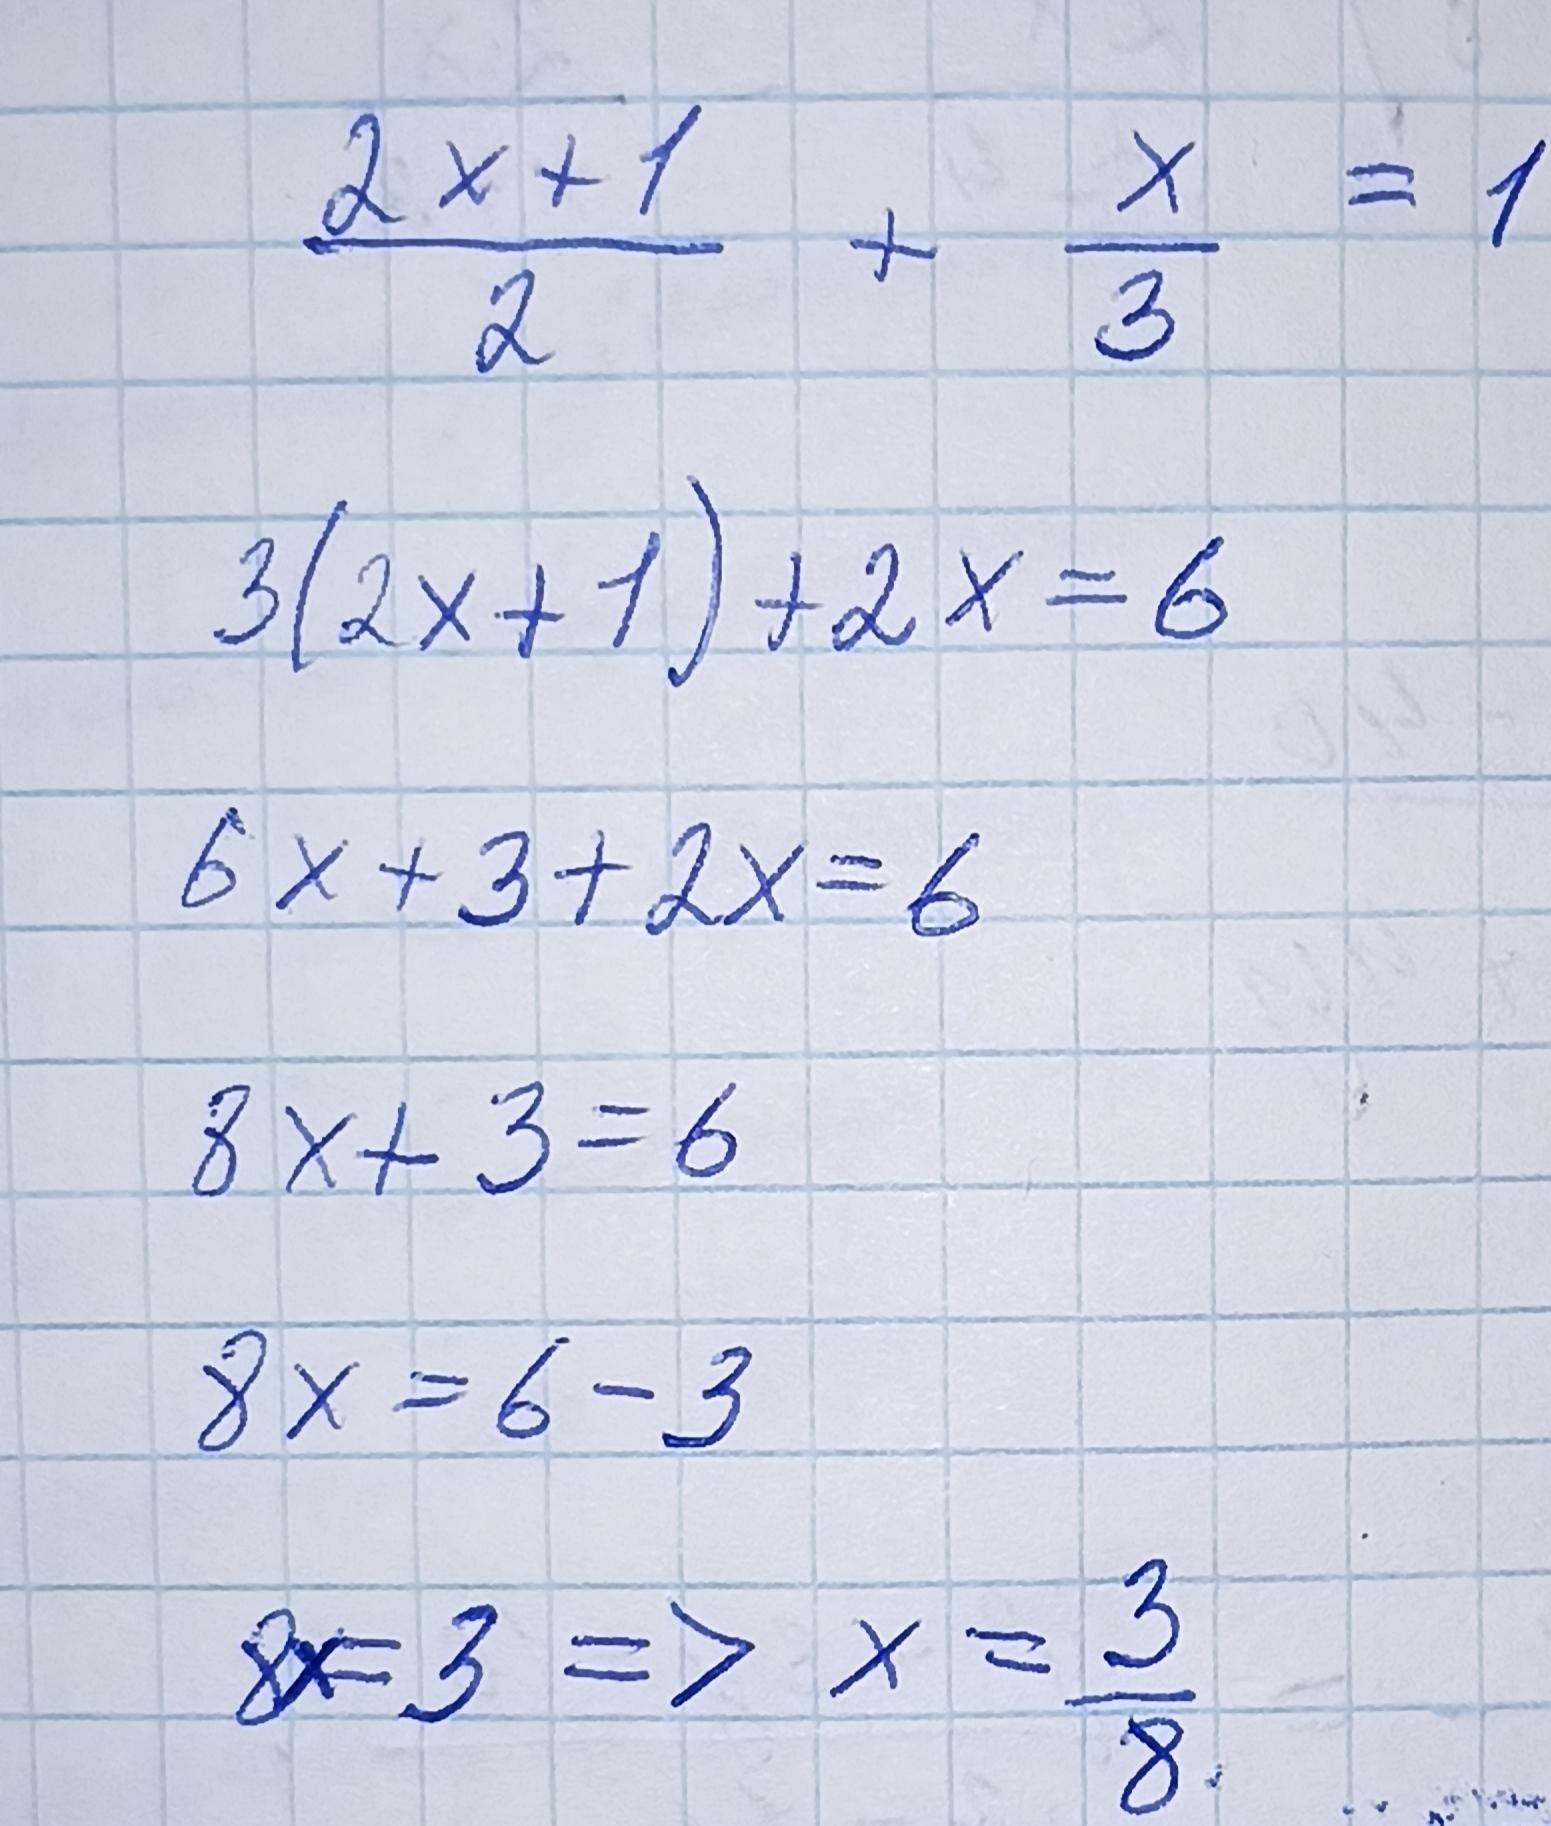 (2x+1)/2 + x/3 = 1
3(2x+1)+2x=6
6x+3+2x=6
8x+3=6
8x=6-3
8x=3 => x = 3/8